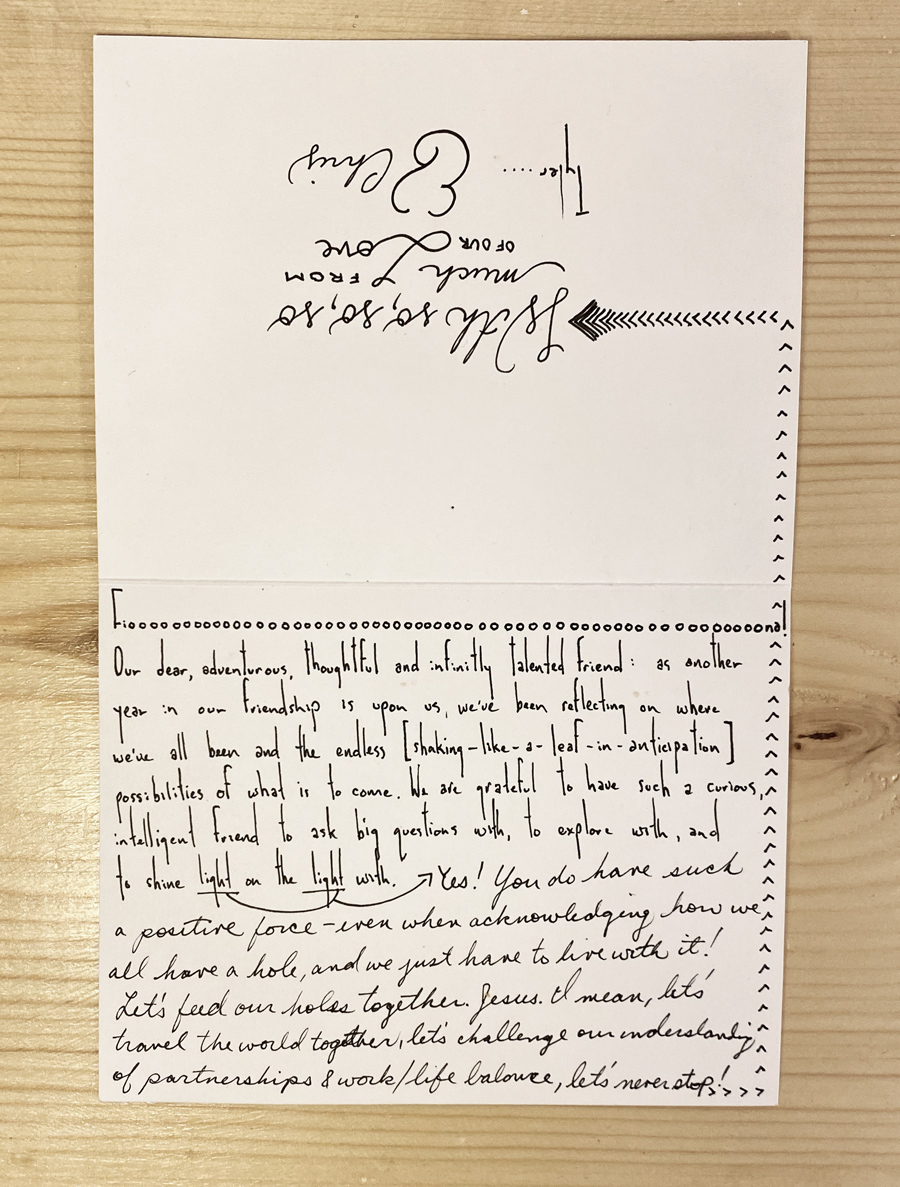 Fiooooooooooooooooooooooooooooooooooooooooooooooooona!
Our dear, adventurous, thoughtful and infinitly talented friend: as another
year in our friendship is upon us, we've been reflecting on where
we've all been and the endless [shaking-like-a-leaf-in-anticipation]
possibilities of what is to come. We are grateful to have such a curious,
intelligent friend to ask big questions with, to explore with, and
to shine light on the light with. → Yes! You do have such
a positive force – even when acknowledging how we
all have a hole, and we just have to live with it!
Let's feed our holes together. Jesus. I mean, let's
travel the world together, let's challenge our understanding
of partnerships & work/life balance, let's never stop! >>>>
With so, so, so
much FROM
OF OUR Love
Tyler..... & Chris